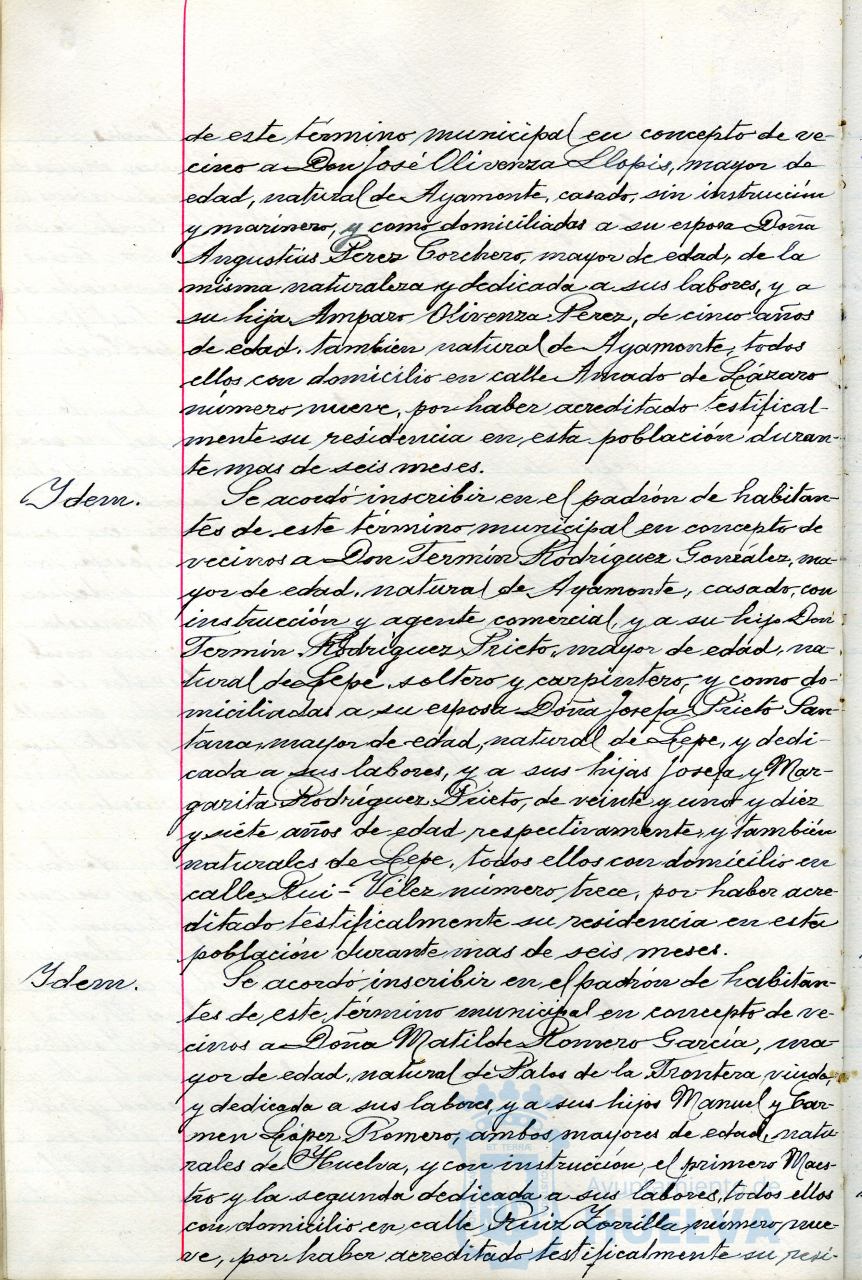 de este término municipal en concepto de ve-
cino a Don José Olivenza Llopis, mayor de
edad, natural de Ayamonte, casado, sin instrucción
y marinero, y como domiciliadas a su esposa Doña
Angustias Perez Corchero, mayor de edad, de la
misma naturaleza y dedicada a sus labores, y a
su hija Amparo Olivenza Perez, de cinco años
de edad, también natural de Ayamonte, todos
ellos con domicilio en calle Amado de Lázaro
número nueve, por haber acreditado testifical-
mente su residencia en esta población duran-
te mas de seis meses.
Ydem.
Se acordó inscribir en el padrón de habitan-
tes de este término municipal en concepto de
vecinos a Don Fermín Rodríguez González, ma-
yor de edad, natural de Ayamonte, casado, con
instrucción y agente comercial, y a su hijo Don
Fermín Rodríguez Prieto, mayor de edad, na-
tural de Lepe, soltero y carpintero, y como do-
miciliadas a su esposa Doña Josefa Prieto San-
tana, mayor de edad, natural de Lepe, y dedi-
cada a sus labores, y a sus hijas Josefa y Mar-
garita Rodríguez Prieto, de veinte y una y diez
y siete años de edad respectivamente, y también
naturales de Lepe, todos ellos con domicilio en
calle Rui-Vélez número trece, por haber acre-
ditado testificalmente su residencia en esta
población durante mas de seis meses.
Ydem.
Se acordó inscribir en el padrón de habitan-
tes de este término municipal en concepto de ve-
cinos a Doña Matilde Romero García, ma-
yor de edad, natural de Palos de la Frontera, viuda,
y dedicada a sus labores, y a sus hijos Manuel y Car-
men López Romero, ambos mayores de edad, natu-
rales de Huelva, y con instrucción, el primero Maes-
tro y la segunda dedicada a sus labores, todos ellos
con domicilio en calle Ruiz Zorrilla número nue-
ve, por haber acreditado testificalmente su resi-
Ayuntamiento de
HUELVA